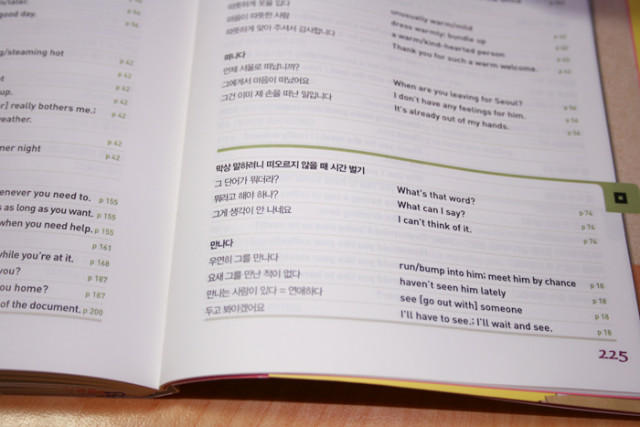 later.
p 94
good day.
p 94
g/steaming hot
p 42
p 42
up.
p 42
r] really bothers me.;
p 42
weather.
p 42
ner night
p 42
enever you need to. p 155
s as long as you want. p 155
when you need help. p 155
p 161
while you're at it. p 168
you? p 187
ou home? p 187
of the document. p 200
따뜻하게 옷을 입다
dress warmly; bundle up
unusually warm/mild
마음이 따뜻한 사람
a warm/kind-hearted person
따뜻하게 맞아 주셔서 감사합니다
Thank you for such a warm welcome.
떠나다
언제 서울로 떠납니까?
When are you leaving for Seoul?
그에게서 마음이 떠났어요
I don't have any feelings for him.
그건 이미 제 손을 떠난 일입니다
It's already out of my hands.
막상 말하려니 떠오르지 않을 때 시간 벌기
그 단어가 뭐더라?
What's that word? p 74
뭐라고 해야 하나?
What can I say? p 74
그게 생각이 안 나네요
I can't think of it. p 74
만나다
우연히 그를 만나다
run/bump into him; meet him by chance p 18
요새 그를 만난 적이 없다
haven't seen him lately p 18
만나는 사람이 있다 = 연애하다
see [go out with] someone p 18
두고 봐야겠어요
I'll have to see.; I'll wait and see. p 18
225